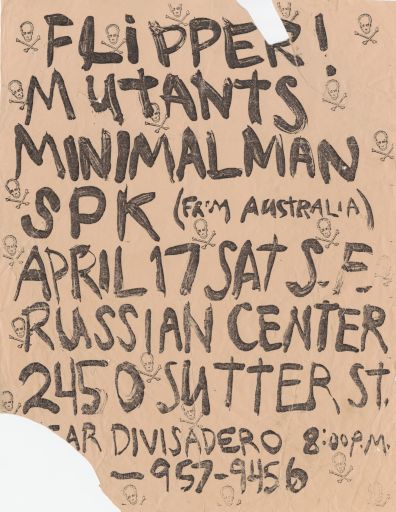 FLiPPER!
MUTANTS
MINIMALMAN
SPK (FR'M AUSTRALIA)
APRIL 17 SAT S.F.
RUSSIAN CENTER
2450 SUTTER ST.
EAR DIVISADERO 8:00P.M.
—957-9456